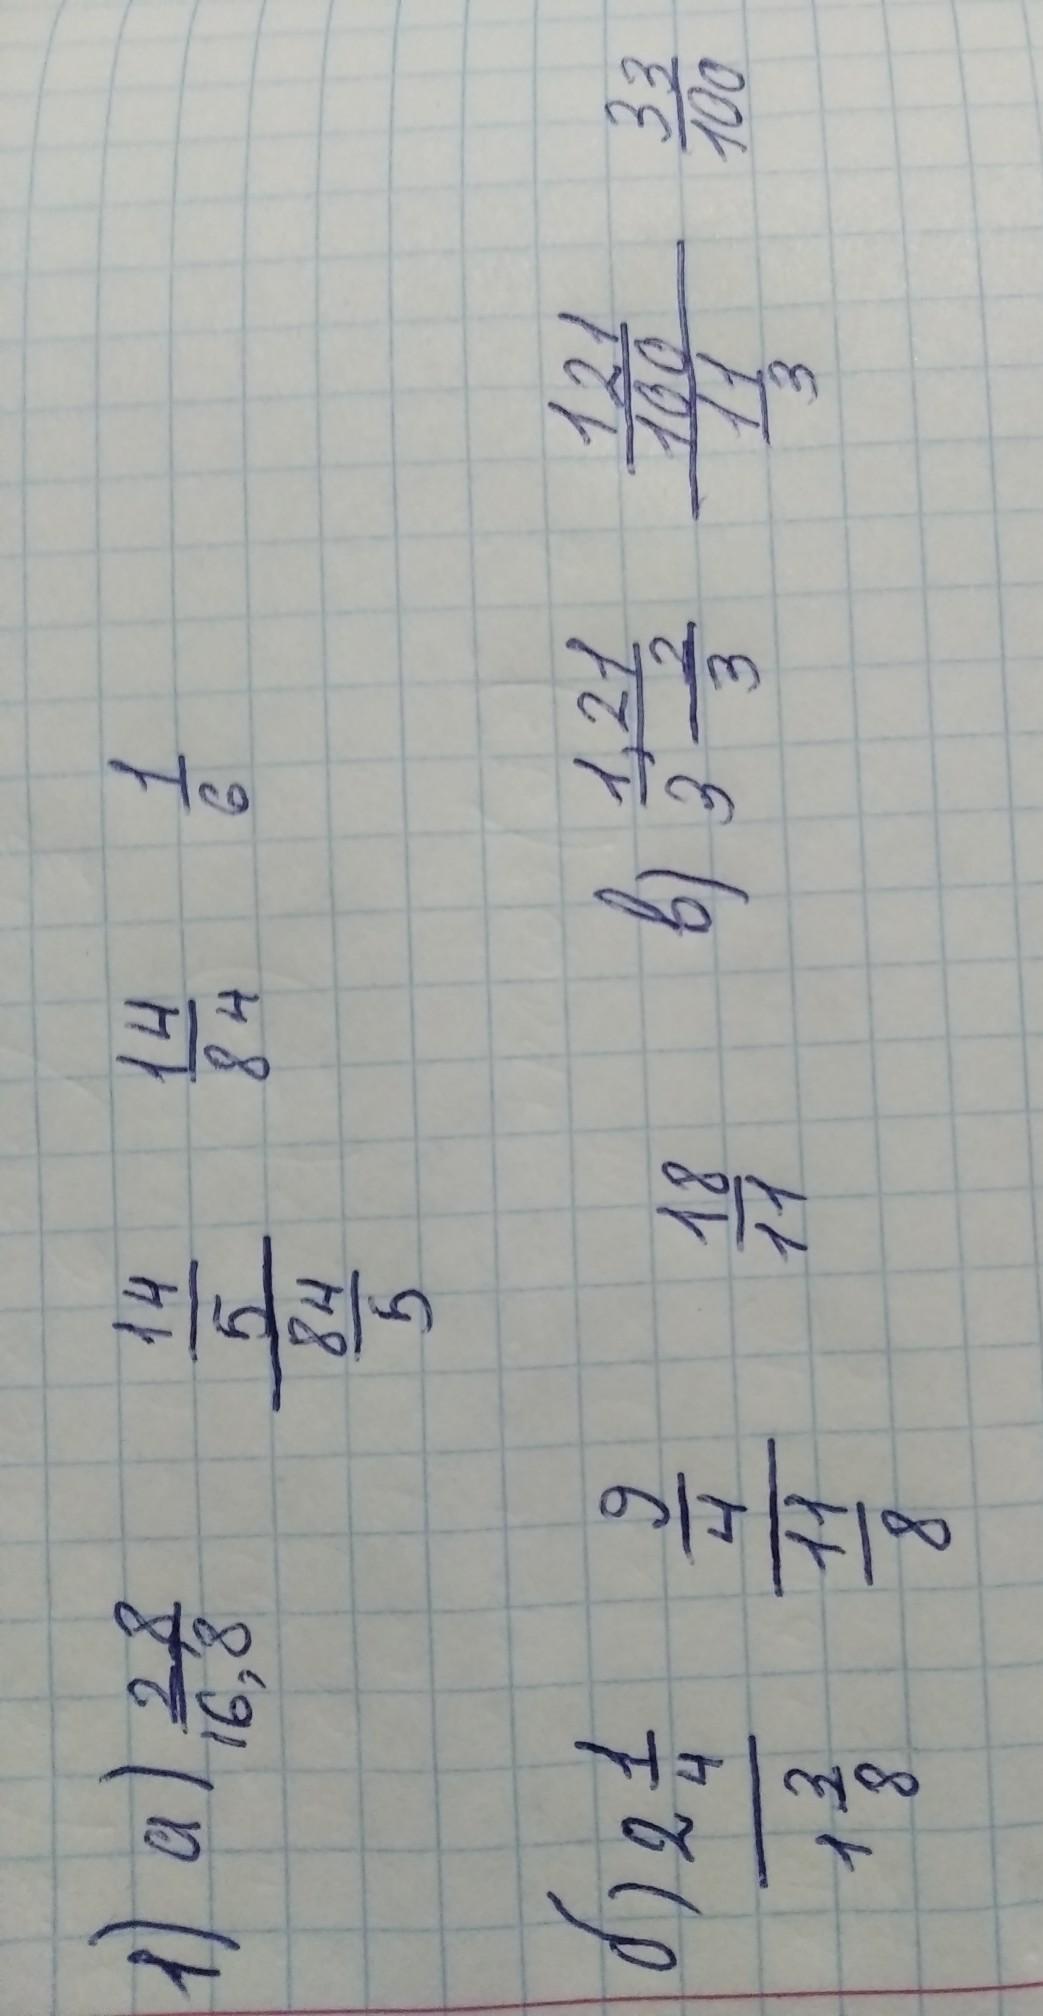 1) а) 2,8/16,8 14/5/84/5 14/84 1/6
б) 2 1/4/1 3/8 9/4/11/8 18/11 в) 1,21/3 2/3 121/100/11/3 33/100